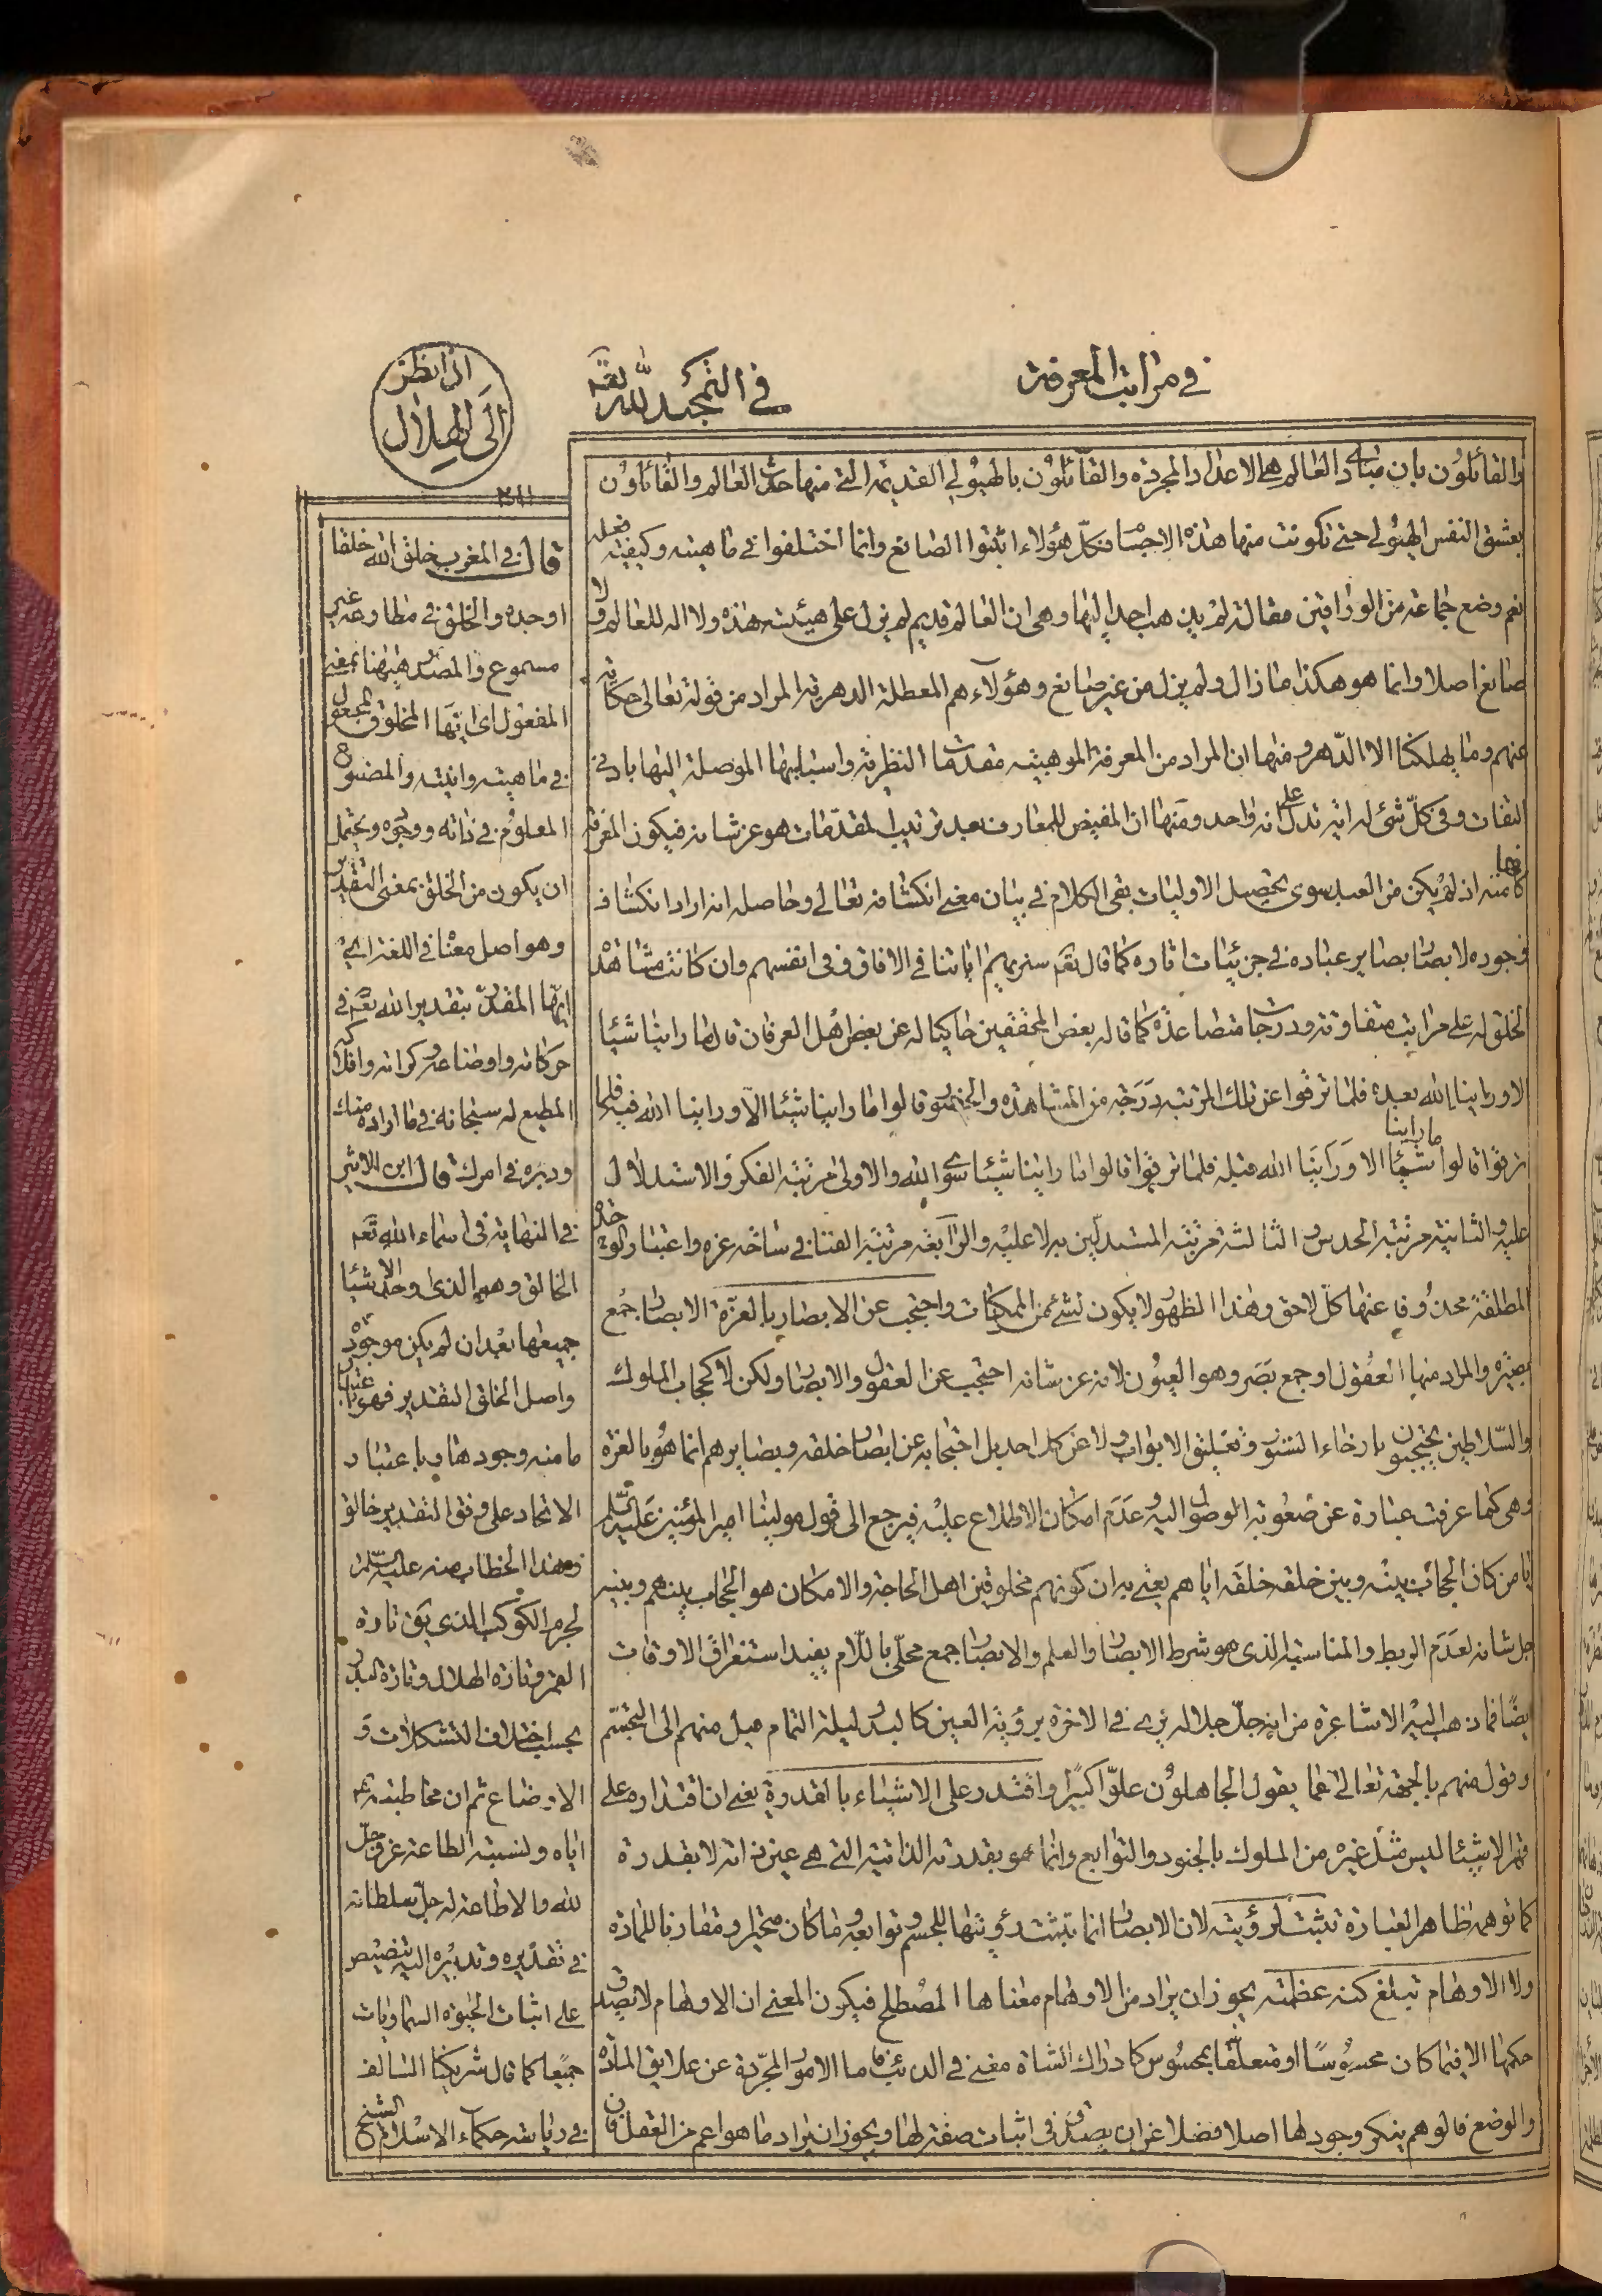 في مراتب المعرفة
في التمجيد لله تعه
اذا نظر
الى الهلال
٣١١
والقائلون بان مبادى العالم هى الاعداد المجردة والقائلون بالهيولى القديمة التى منها حدث العالم والقائلون
بعشق النفس الهيولى حتى تكونت منها هذه الاجسام فكل هؤلاء اثبتوا الصانع وانما اختلفوا فى ماهيته وكيفية فعله
نعم وضع جماعة من الوراقين مقالة لم يذهب احد اليها وهى ان العالم قديم لم يزل على هيئته هذه ولا اله للعالم ولا
صانع اصلا وانما هو هكذا ما زال ولم يزل من غير صانع وهؤلاء هم المعطلة الدهرية المراد من قوله تعالى حكاية
عنهم وما يهلكنا الا الدهر ومنها ان المراد من المعرفة الموهبية مقدمات النظرية واسبابها الموصلة اليها بادنى
التفات وفى كل شئ له اية تدل على انه واحد ومنها ان المفيض للمعارف بعد ترتيب المقدمات هو عز شانه فيكون المعرفة
كانها منه اذ لم يكن من العبد سوى تحصيل الاوليات بقى الكلام فى بيان معنى انكشافه تعالى وحاصله انه اراد انكشاف
وجوده لابصار بصاير عباده فى جزئيات اثاره كما قال تعه سنريهم اياتنا فى الافاق وفى انفسهم وان كانت مشاهدة
الخلق له على مراتب متفاوتة ودرجات متصاعدة كما قاله بعض المحققين حاكيا له عن بعض اهل العرفان قال ما راينا شيئا
الا وراينا الله بعده فلما ترقوا عن تلك المرتبة درجة من المشاهدة والحضور قالوا ما راينا شيئا الا وراينا الله فيه فلما
ترقوا قالوا ما راينا شيئا الا وراينا الله قبله فلما ترقوا قالوا ما راينا شيئا سوى الله والاولى مرتبة الفكر والاستدلال
عليه والثانية مرتبة الحدس والثالثة مرتبة المستدلين به لا عليه والرابعة مرتبة الفناء فى ساحة عزه واعتبار الوحدة
المطلقة محذوفا عنها كل لاحق وهذا الظهور لا يكون لشئ من الممكنات واحتجب عن الابصار بالعزة الابصار جمع
بصيرة والمراد منها العقول او جمع بصر وهو العيون لانه عز شانه احتجب عن العقول والابصار ولكن لا كحجاب الملوك
والسلاطين يحتجبون بارخاء الستور وتغليق الابواب ولا عن كل احد بل احتجابه عن ابصار خلقه وبصايرهم انما هو بالعزة
وهى كما عرفت عبارة عن صعوبة الوصول اليه وعدم امكان الاطلاع عليه فيرجع الى قول مولينا امير المؤمنين عليه السلم
يا من كان الحجاب بينه وبين خلقه خلقه اياهم يعنى به ان كونهم مخلوقين اهل الحاجة والامكان هو الحجاب بينهم وبينه
جل شانه لعدم الربط والمناسبة الذى هو شرط الابصار والعلم والابصار جمع محلى باللام يفيد استغراق الاوقات
ايضا فما ذهب اليه الاشاعرة من انه جل جلاله يرى فى الاخرة برؤية العين كالبدر ليلة التمام ميل منهم الى التجسم
وقول منهم بالجهة تعالى عما يقول الجاهلون علوا كبيرا واقتدر على الاشياء بالقدرة يعنى ان اقتداره على
قهر الاشيئا ليس مثل غيره من الملوك بالجنود والتوابع وانما هو بقدرته الذاتية التى هى عين ذاته لا بقدرة
كما توهمه ظاهر العبارة تثبت لرؤيته لان الابصار انما تثبت رؤيتها للجسم وتوابعه وما كان متحيزا ومقارنا للمادة
ولا الاوهام تبلغ كنه عظمته يجوز ان يراد من الاوهام معناها المصطلح فيكون المعنى ان الاوهام لا يصدق
حكمها الا فيما كان محسوسا او متعلقا بمحسوس كادراك الشاة معنى فى الذئب فاما الامور المجردة عن علايق المادة
والوضع فالوهم ينكر وجودها اصلا فضلا عن ان يصدق فى اثبات صفة لها ويجوز ان يراد ما هو اعم من العقل فان
قال فى المغرب خلق الله خلقا
اوجده والخلق فى مطاوعه غير
مسموع والمصدر هيهنا بمعنى
المفعول اى ايها المخلوق المجعول
فى ماهيته وانيته والمصنوع
المعلوم فى ذاته ووجوده ويحتمل
ان يكون من الخلق بمعنى التقدير
وهو اصل معناه فى اللغة اى
ايها المقدر بتقدير الله تعه فى
حركاته واوضاعه وكراته وافلاكه
المطيع له سبحانه فى ما اراده منك
ودبره فى امرك قال ابن الاثير
فى النهاية فى اسماء الله تعه
الخالق وهو الذى اوجد الاشيا
جميعها بعد ان لم يكن موجودة
واصل الخلق التقدير فهو باعتبار
ما منه وجودها وباعتبار
الايجاد على وفق التقدير خالق
وهذا الخطاب منه عليه السلم
لجرم الكوكب الذى يق تارة
القمر وتارة الهلال وتارة البدر
بحسب اختلاف التشكلات و
الاوضاع ثم ان مخاطبته عم
اياه ونسبته الطاعة عز وجل
لله والاطاعة له جل سلطانه
فى تقديره وتدبيره اليه تنصيص
على اثبات الحيوة السماويات
جميعا كما قال شريكنا السالف
فى رياسة حكماء الاسلام الشيخ